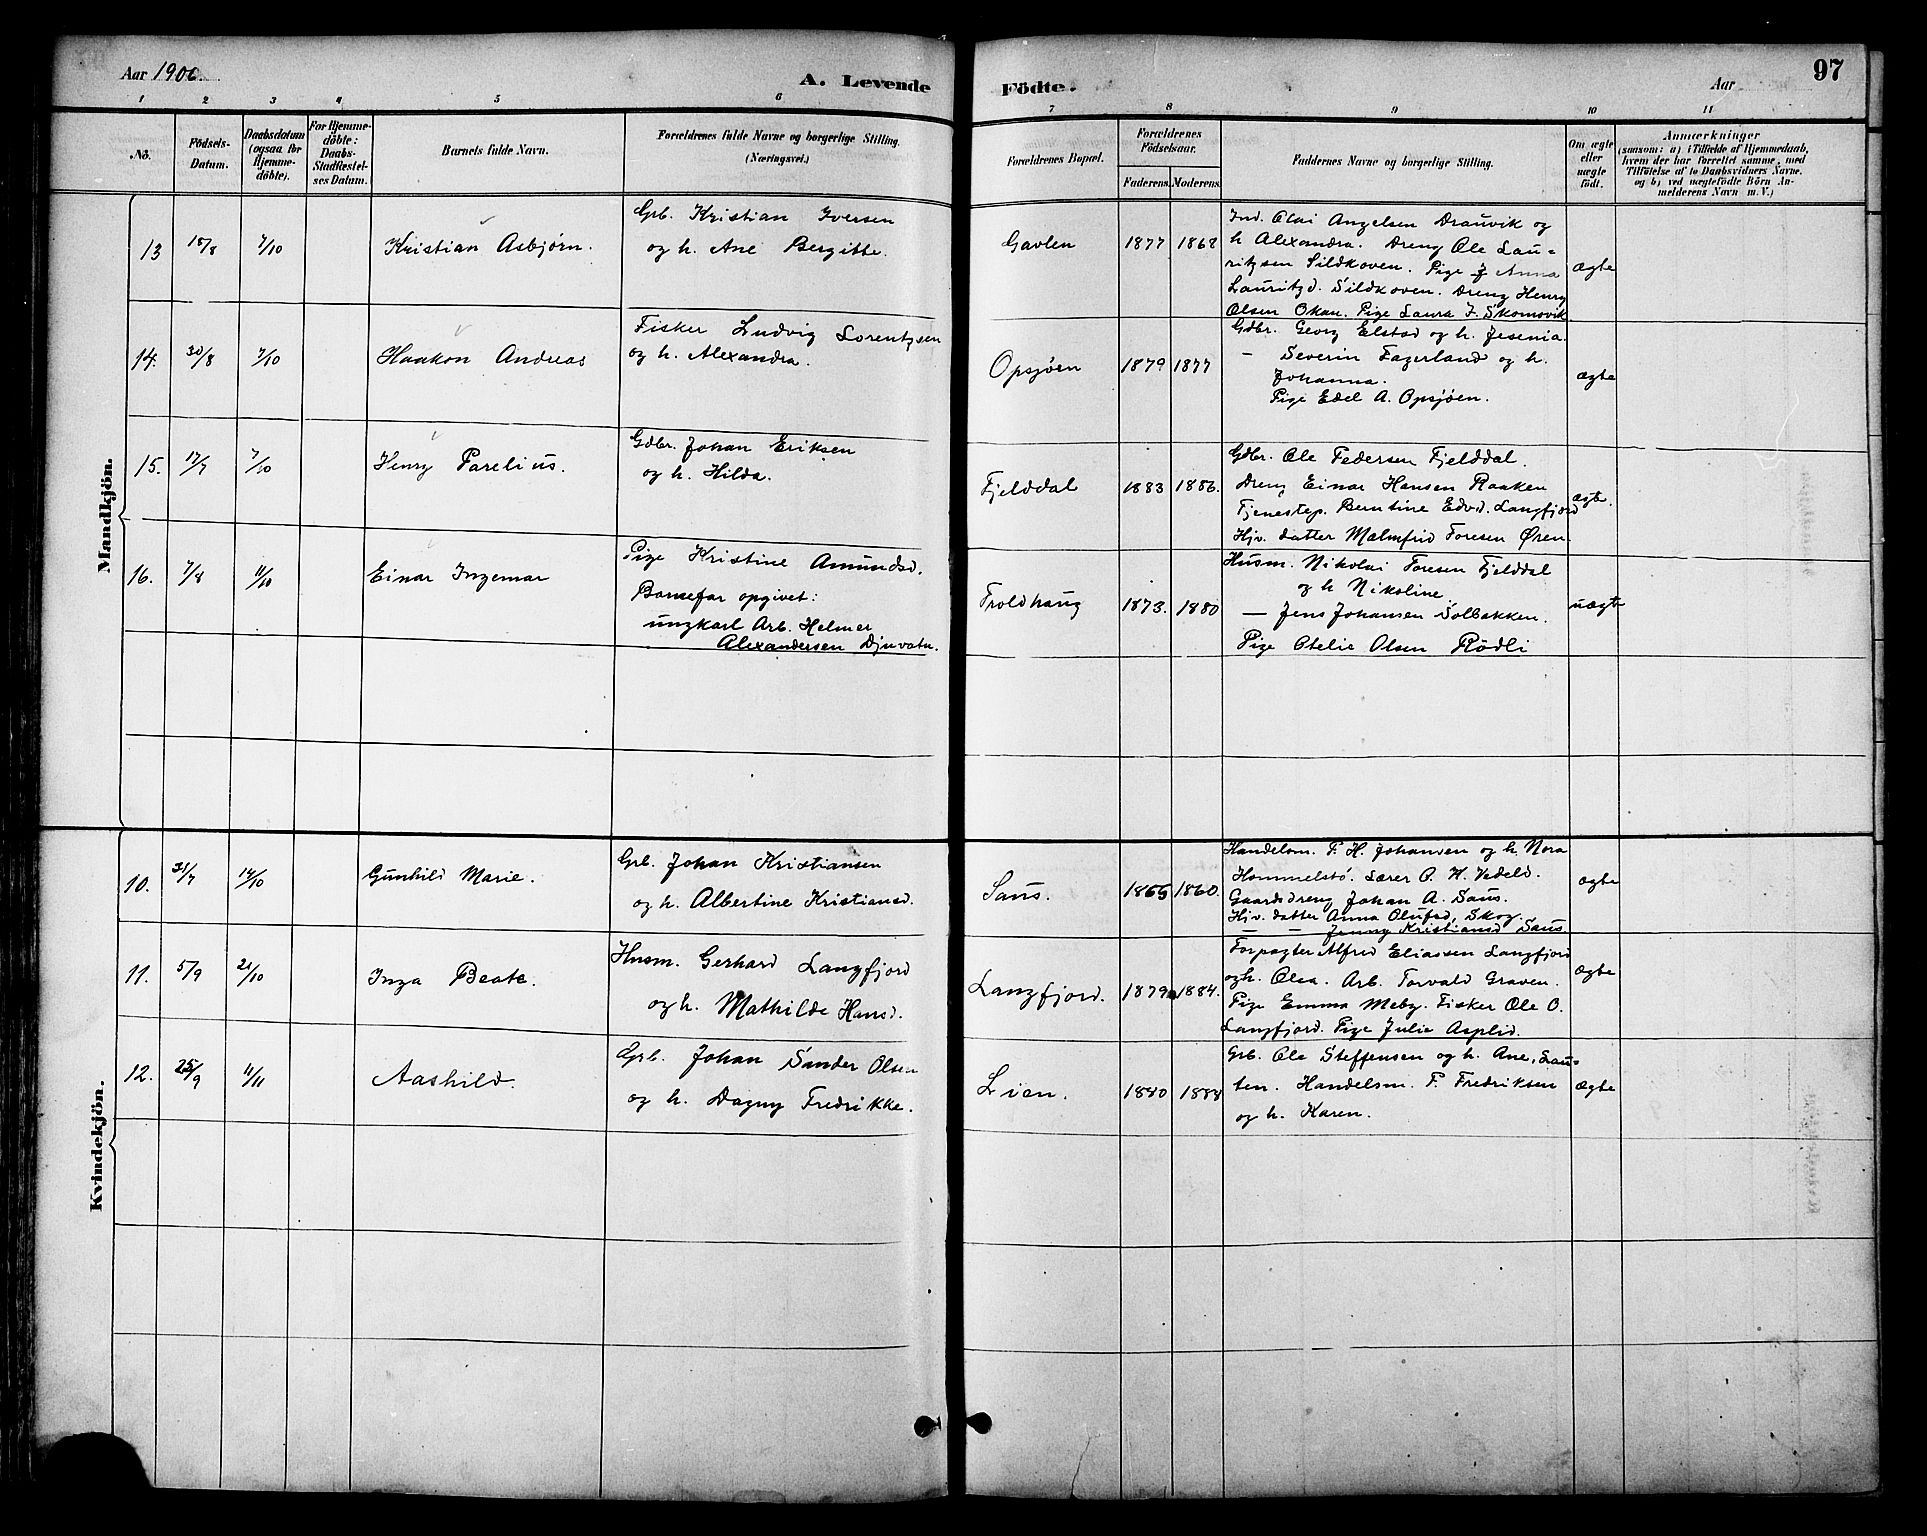 Aar 1906.
A. Levende
Födte.
Aar
97
1 2 3 4 5 6 7 8 9 10 11
No.
Födsels-
Datum.
Daabsdatum
(ogsaa for
Hjemme-
döbte).
For Hjemme-
döbte:
Daabs-
Stadfæstel-
ses Datum.
Barnets fulde Navn.
Forældrenes fulde Navne og borgerlige Stilling.
(Næringsvei.)
Forældrenes Bopæl.
Forældrenes
Födselsaar.
Faderens. Moderens.
Faddernes Navne og borgerlige Stilling.
Om ægte
eller
uægte
födt.
Anmærkninger
(saasom: a) i Tilfælde af Hjemmedaab,
hvem der har forrettet samme, med
Tilföielse af to Daabsvidners Navne.
og b) ved uægtefödte Börn An-
melderens Navn m. V.)
Mandkjön.
13 18/8 7/10 Kristian Asbjørn.
Grb. Kristian Iversen
og h. Ane Bergitte.
Gavlen 1877 1868
Ind. Olai Angelsen Drauvik og
h Alexandra. Dreng Ole Lau-
ritzsen Sildkoven. Pige J Anna
Lauritzd. Sildkoven. Dreng Henry
Olsen Okan. Pige Laura J. Skomovik
ægte
14. 30/8 7/10 Haakon Andreas
Fisker Ludvig Lorentzen
og h. Alexandra.
Opsjøen 1879 1877
Gdbr. Georg Elstad og h. Jesenia.
— Severin Fagerland og h.
Johanna.
Pige Edel A. Opsjøen.
ægte
15. 17/7 7/10 Henry Parelius.
Gdbr. Johan Eriksen
og h. Hilda.
Fjelddal 1883 1886.
Gdbr. Ole Pedersen Fjelddal.
Dreng Einar Hansen Raaken
Tjenestep. Berntine Edvd. Langfjord
Hjv. datter Malmfrid Toresen Øren
ægte.
16. 7/8 11/10 Einar Ingemar
Pige Kristine Amundsd.
Barnefar opgivet:
ungkarl Arb. Helmer
Alexandersen Djuvatn.
Troldhaug 1873. 1880
Husm. Nikolai Toresen Fjelddal
og h Nikoline
— Jens Johansen Solbakken.
Pige Otelie Olsen Rödli
uægte
Kvindekjön.
10. 31/7 14/10 Gunhild Marie.
Grb. Johan Kristiansen
og h. Albertine Kristiansd.
Saus. 1865 1860.
Handelsm. P. H. Johansen og h. Nora
Hommelstö. Lærer O. H. Vedeld.
Gaardsdreng Johan A. Saus.
Hjv. datter Anna Olufsd. Skog.
— — Jenny Kristiansd Saus.
ægte
11. 5/9 21/10 Inga Beate.
Husm. Gerhard Langfjord
og h. Mathilde Hansd.
Langfjord. 1879 1884.
Forpagter Alfred Eliassen Langfjord
og h. Olsa. Arb. Torvald Graven.
Pige Emma Meby. Fisker Ole O.
Langfjord. Pige Julie Asplid.
ægte
12. 25/9 11/11 Aashild.
Grb. Johan Sander Olsen
og h. Dagny Fredrikke.
Lien. 1880 1884
Grb. Ole Steffensen og h. Ane, Saus-
ten. Handelsm. P. Fredriksen
og h. Karen.
ægte